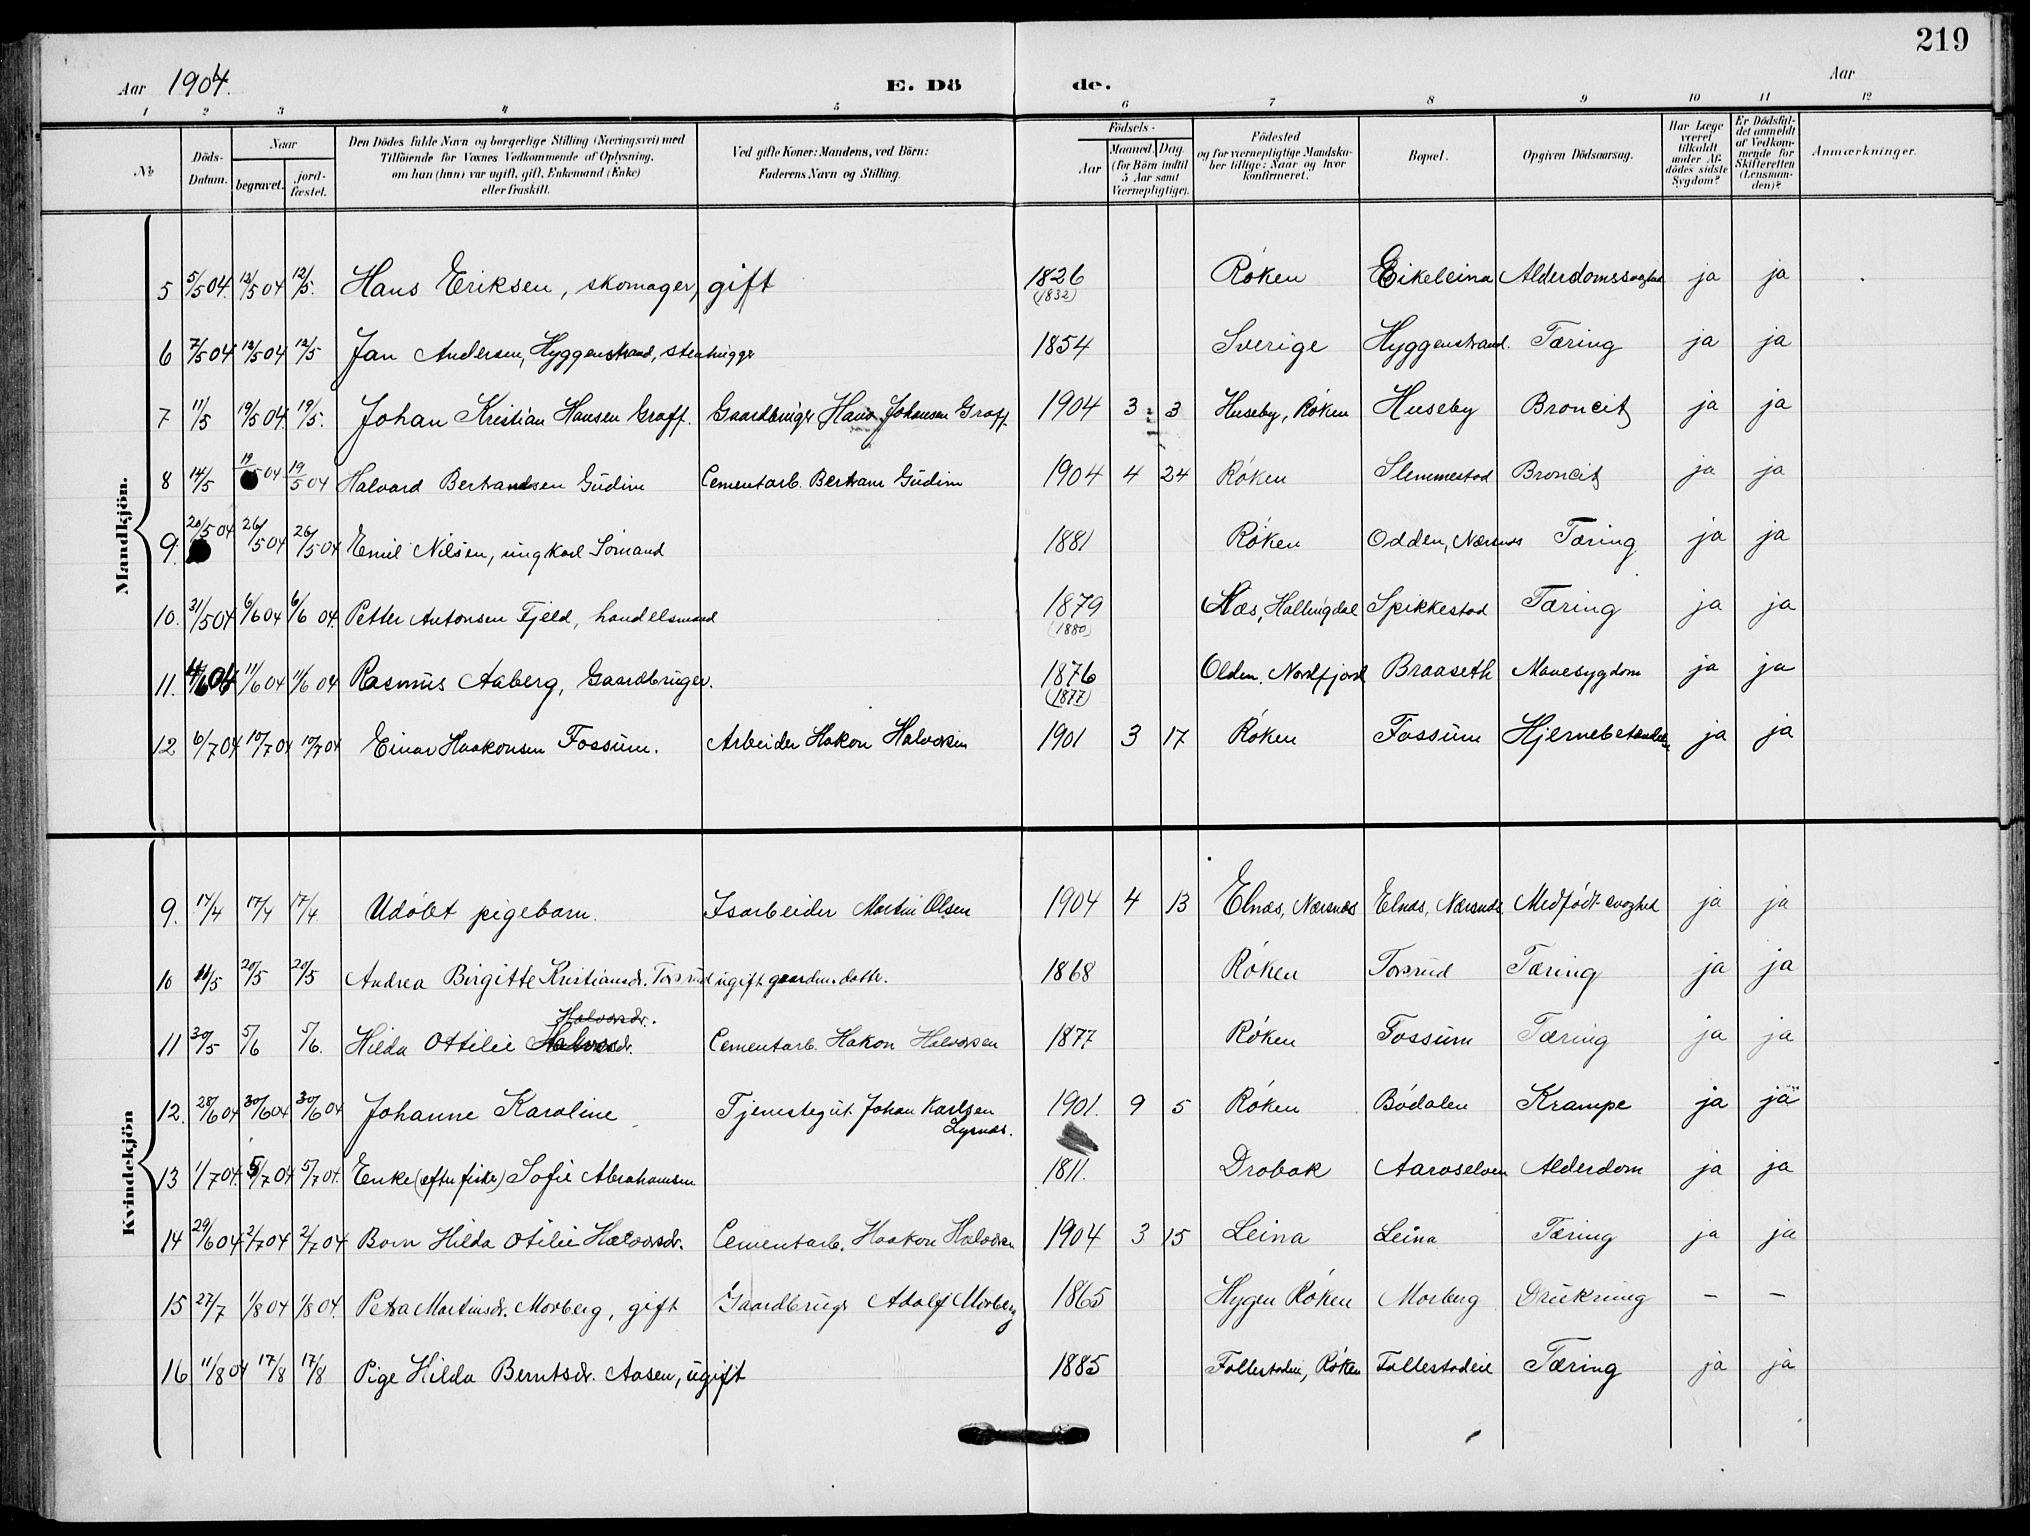 219
Aar 1904. E. Dö de. Aar
1 2 3 4 5 6 7 8 9 10 11 12
No
Döds-Datum.
Naar
begravet. jord-fæstet.
Den Dödes fulde Navn og borgerlige Stilling (Næringsvei) med
Tilföiende for Voxnes Vedkommende af Oplysning,
om han (hun) var ugift, gift, Enkemand (Enke)
eller fraskilt.
Ved gifte Koner: Mandens, ved Börn:
Faderens Navn og Stilling.
Födsels-
Aar Maaned. Dag.
(for Börn indtil
5 Aar samt
Værnepligtige).
Födested
og for værnepligtige Mandska-
ber tillige: Naar og hvor
konfirmeret.
Bopæl.
Opgiven Dödsaarsag.
Har Læge
været
tilkaldt
under Af-
dödes sidste
Sygdom?
Er Dödsfal-
det anmeldt
af Vedkom-
mende for
Skifteretten
(Lensman-
den)?
Anmærkninger.
Mandkjön.
5 5/5 04. 12/5 04 12/5. Hans Eriksen, skomager, gift 1826 (1832) Røken Eikeleina Alderdomssvaghed ja ja
6 7/5 04 12/5 04 12/5 Jan Andersen, Hyggenstrand, stenhugger 1854 Sverige Hyggenstrand. Tæring ja ja
7 11/5 19/5 04. 19/5. Johan Kristian Hansen Graff. Gaardbruger Hans Johansen Graff. 1904 3 3 Huseby, Røken Huseby Broncit ja ja
8 14/5 19/5 04 19/5 04 Halvard Bertramsen Gudim Cementarb. Bertram Gudim 1904 4 24 Røken Slemmestad Broncit ja ja
9. 20/5 04 26/5 04 26/5 04 Emil Nilsen, ungkarl Sømand 1881 Røken Odden, Nærsnes Tæring ja ja
10. 31/5 04 6/6 04 6/6 04. Petter Antonsen Fjeld, handelsmand 1879 (1880) Næs, Hallingdal Spikkestad Tæring ja ja
11. 4/6 04 11/6 04 11/6 04 Rasmus Aaberg, Gaardbruger. 1876 (1877) Olden, Nordfjord Braaseth Mavesygdom ja ja
12 6/7 04 10/7 04 10/7 04 Einar Haakonsen Fossum. Arbeider Hakon Halvorsen 1901 3 17 Røken Fossum Hjernebetændelse ja ja
Kvindekjön
9. 17/4 17/4 17/4 Udøbt pigebarn. Isarbeider Martin Olsen 1904 4 13 Elnæs, Nærsnæs Elnæs, Nærsnæs Medfødt svaghed ja ja
10 14/5 20/5 20/5 Andrea Birgitte Kristiansdr. Torsrud ugift gaardm.datter. 1868 Røken Torsrud Tæring ja ja
Halvorsdr.
11 30/5 5/6 5/6. Hilda Ottilie Halvorsdr. Cementarb. Hakon Halvorsen 1877 Røken Fossum Tæring ja ja
12. 28/6 04 30/6 04 30/6 04 Johanne Karoline Tjenestegut Johan Karlsen 1901. 9 5 Røken Bødalen Krampe ja ja
Lysnæs.
13 1/7 04. 5/7 04 5/7 04. Enke (efter fisker) Sofie Abrahamsen 1811. Drøbak Aaroselven Alderdom ja ja
14 29/6 04 2/7 04 2/7 04 Barn Hilda Otilie Halvorsdr. Cementarb. Haakon Halvorsen 1904 3 15 Leina Leina Tæring ja ja
15 27/7 1/8 04 1/8 04. Petra Martinsdr. Morberg, gift Gaardbruger Adolf Morberg 1865 Hygen Røken Morberg Drukning – –
16 11/8 04 17/8 17/8 Pige Hilda Berntsdr. Aasen, ugift 1885 Follestadeie, Røken Follestadeie Tæring ja ja